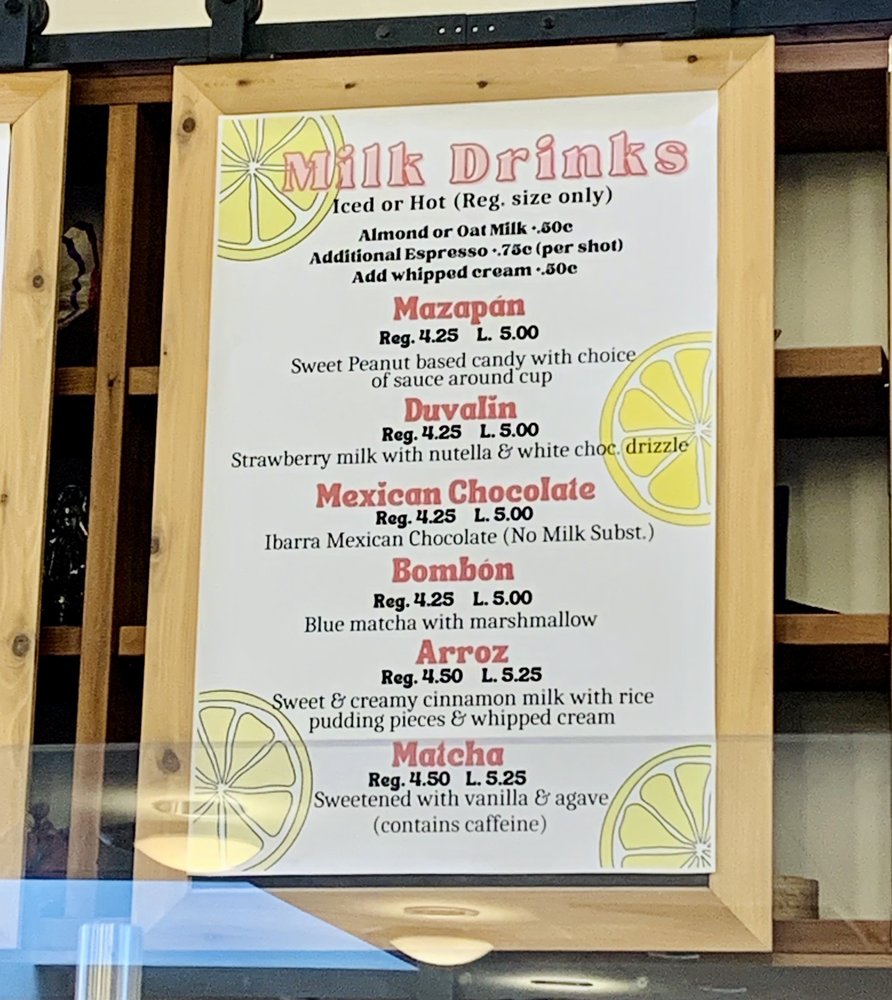 Milk Drinks
Iced or Hot (Reg. size only)
Almond or Oat Milk •.50c
Additional Espresso •.75c (per shot)
Add whipped cream •.50c
Mazapán
Reg. 4.25 L. 5.00
Sweet Peanut based candy with choice
of sauce around cup
Duvalín
Reg. 4.25 L. 5.00
Strawberry milk with nutella & white choc. drizzle
Mexican Chocolate
Reg. 4.25 L. 5.00
Ibarra Mexican Chocolate (No Milk Subst.)
Bombón
Reg. 4.25 L. 5.00
Blue matcha with marshmallow
Arroz
Reg. 4.50 L. 5.25
Sweet & creamy cinnamon milk with rice
pudding pieces & whipped cream
Matcha
Reg. 4.50 L. 5.25
Sweetened with vanilla & agave
(contains caffeine)